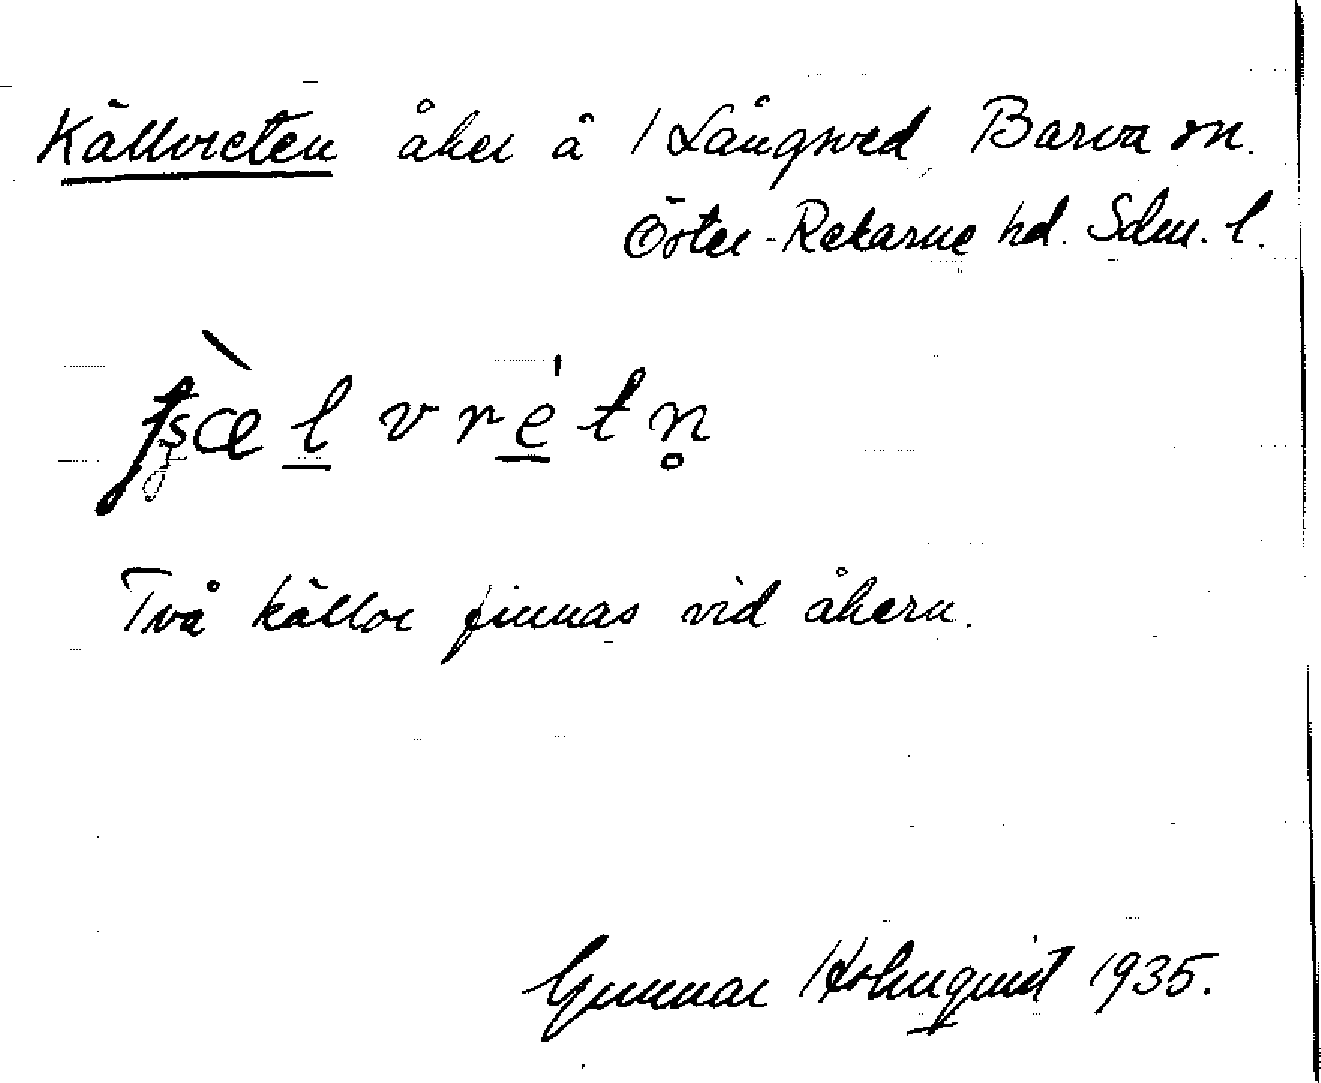 Källvreten åker å 1 Långsved, Barva sn.
Öster-Rekarne hd. Sdm. l.
Två källor finnas vid åkern.
Gunnar Holmquist 1935.